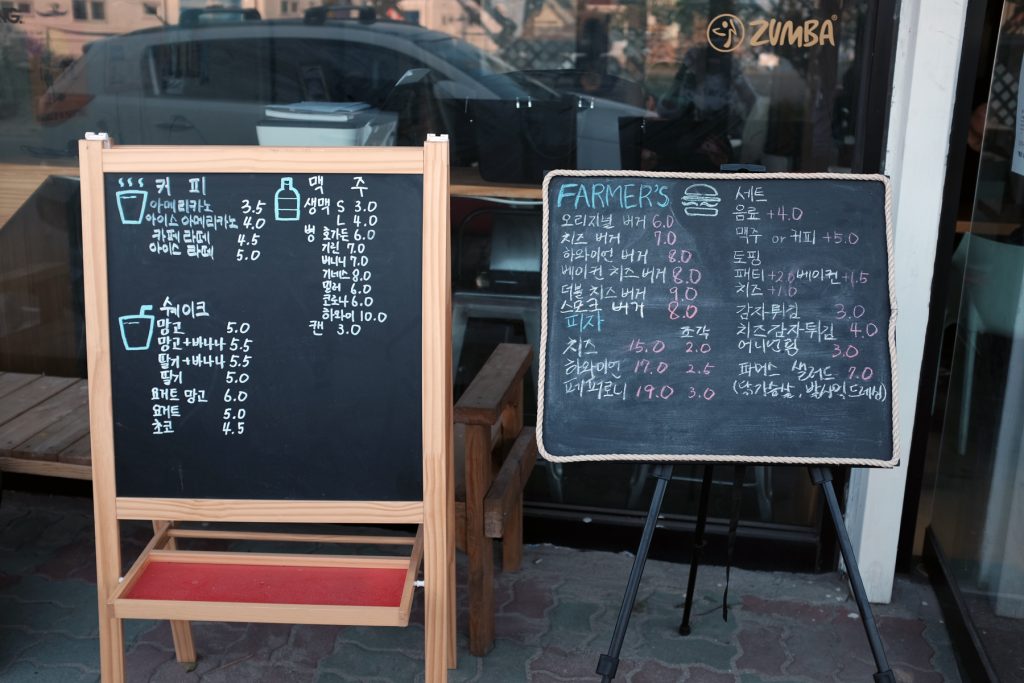 NG.
ZUMBA
커 피
아메리카노 3.5
아이스 아메리카노 4.0
카페라떼 4.5
아이스 라떼 5.0
쉐이크
망고 5.0
망고+바나나 5.5
딸기+바나나 5.5
딸기 5.0
요거트 망고 6.0
요거트 5.0
초코 4.5
맥 주
생맥 S 3.0
L 4.0
병 호가든 6.0
기린 7.0
버니니 7.0
기네스 8.0
밀러 6.0
코로나 6.0
하와이 10.0
캔 3.0
FARMER'S
오리지널 버거 6.0
치즈 버거 7.0
하와이언 버거 8.0
베이컨 치즈버거 8.0
더블 치즈버거 9.0
버거 8.0
피자 조각
치즈 15.0 2.0
하와이언 17.0 2.5
페퍼로니 19.0 3.0
세트
음료 +4.0
맥주 or 커피 +5.0
토핑
패티 베이컨 +1.5
치즈 +1.0
감자튀김 3.0
치즈감자튀김 4.0
어니언링 3.0
파머스 샐러드 7.0
(닭가슴살, 발사믹드레싱)